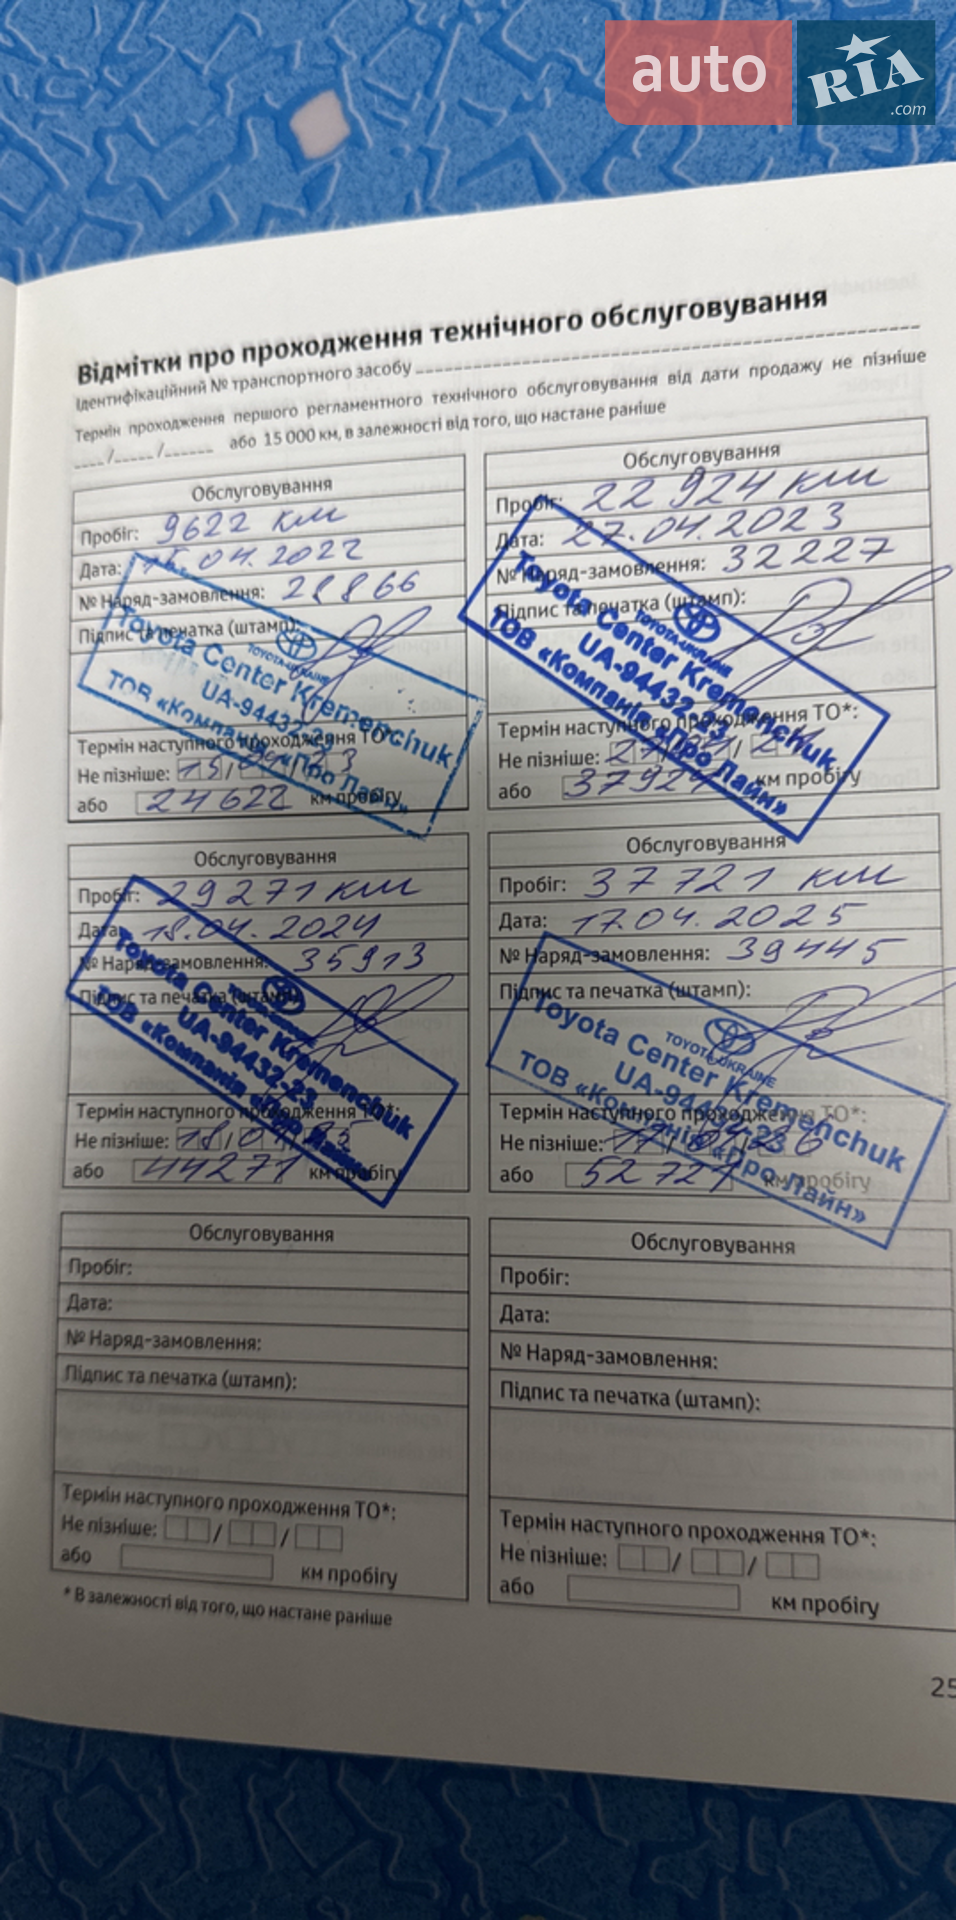 auto RIA.com
Відмітки про проходження технічного обслуговування
Ідентифікаційний № транспортного засобу
Термін проходження першого регламентного технічного обслуговування від дати продажу не пізніше
/ / або 15 000 км, в залежності від того, що настане раніше
Обслуговування
Пробіг: 9622 км
Дата: 15.04.2022
№ Наряд-замовлення: 28866
Підпис та печатка (штамп):
TOYOTA-UKRAINE
Toyota Center Kremenchuk
UA-94432-23
ТОВ «Компанія «Про Лайн»
Термін наступного проходження ТО*:
Не пізніше: 15/04/23
або 24622 км пробігу
Обслуговування
Пробіг: 22 924 км
Дата: 27.04.2023
№ Наряд-замовлення: 32227
Підпис та печатка (штамп):
TOYOTA-UKRAINE
Toyota Center Kremenchuk
UA-94432-23
ТОВ «Компанія «Про Лайн»
Термін наступного проходження ТО*:
Не пізніше: 27/04/24
або 37924 км пробігу
Обслуговування
Пробіг: 29271 км
Дата: 18.04.2024
№ Наряд-замовлення: 35913
Підпис та печатка (штамп):
Toyota Center Kremenchuk
UA-94432-23
ТОВ «Компанія «Про Лайн»
Термін наступного проходження ТО*:
Не пізніше: 18/04/25
або 44271 км пробігу
Обслуговування
Пробіг: 37721 км
Дата: 17.04.2025
№ Наряд-замовлення: 39445
Підпис та печатка (штамп):
TOYOTA-UKRAINE
Toyota Center Kremenchuk
UA-94432-23
ТОВ «Компанія «Про Лайн»
Термін наступного проходження ТО*:
Не пізніше: 17/04/26
або 52721 км пробігу
Обслуговування
Пробіг:
Дата:
№ Наряд-замовлення:
Підпис та печатка (штамп):
Термін наступного проходження ТО*:
Не пізніше: / /
або км пробігу
Обслуговування
Пробіг:
Дата:
№ Наряд-замовлення:
Підпис та печатка (штамп):
Термін наступного проходження ТО*:
Не пізніше: / /
або км пробігу
* В залежності від того, що настане раніше
25